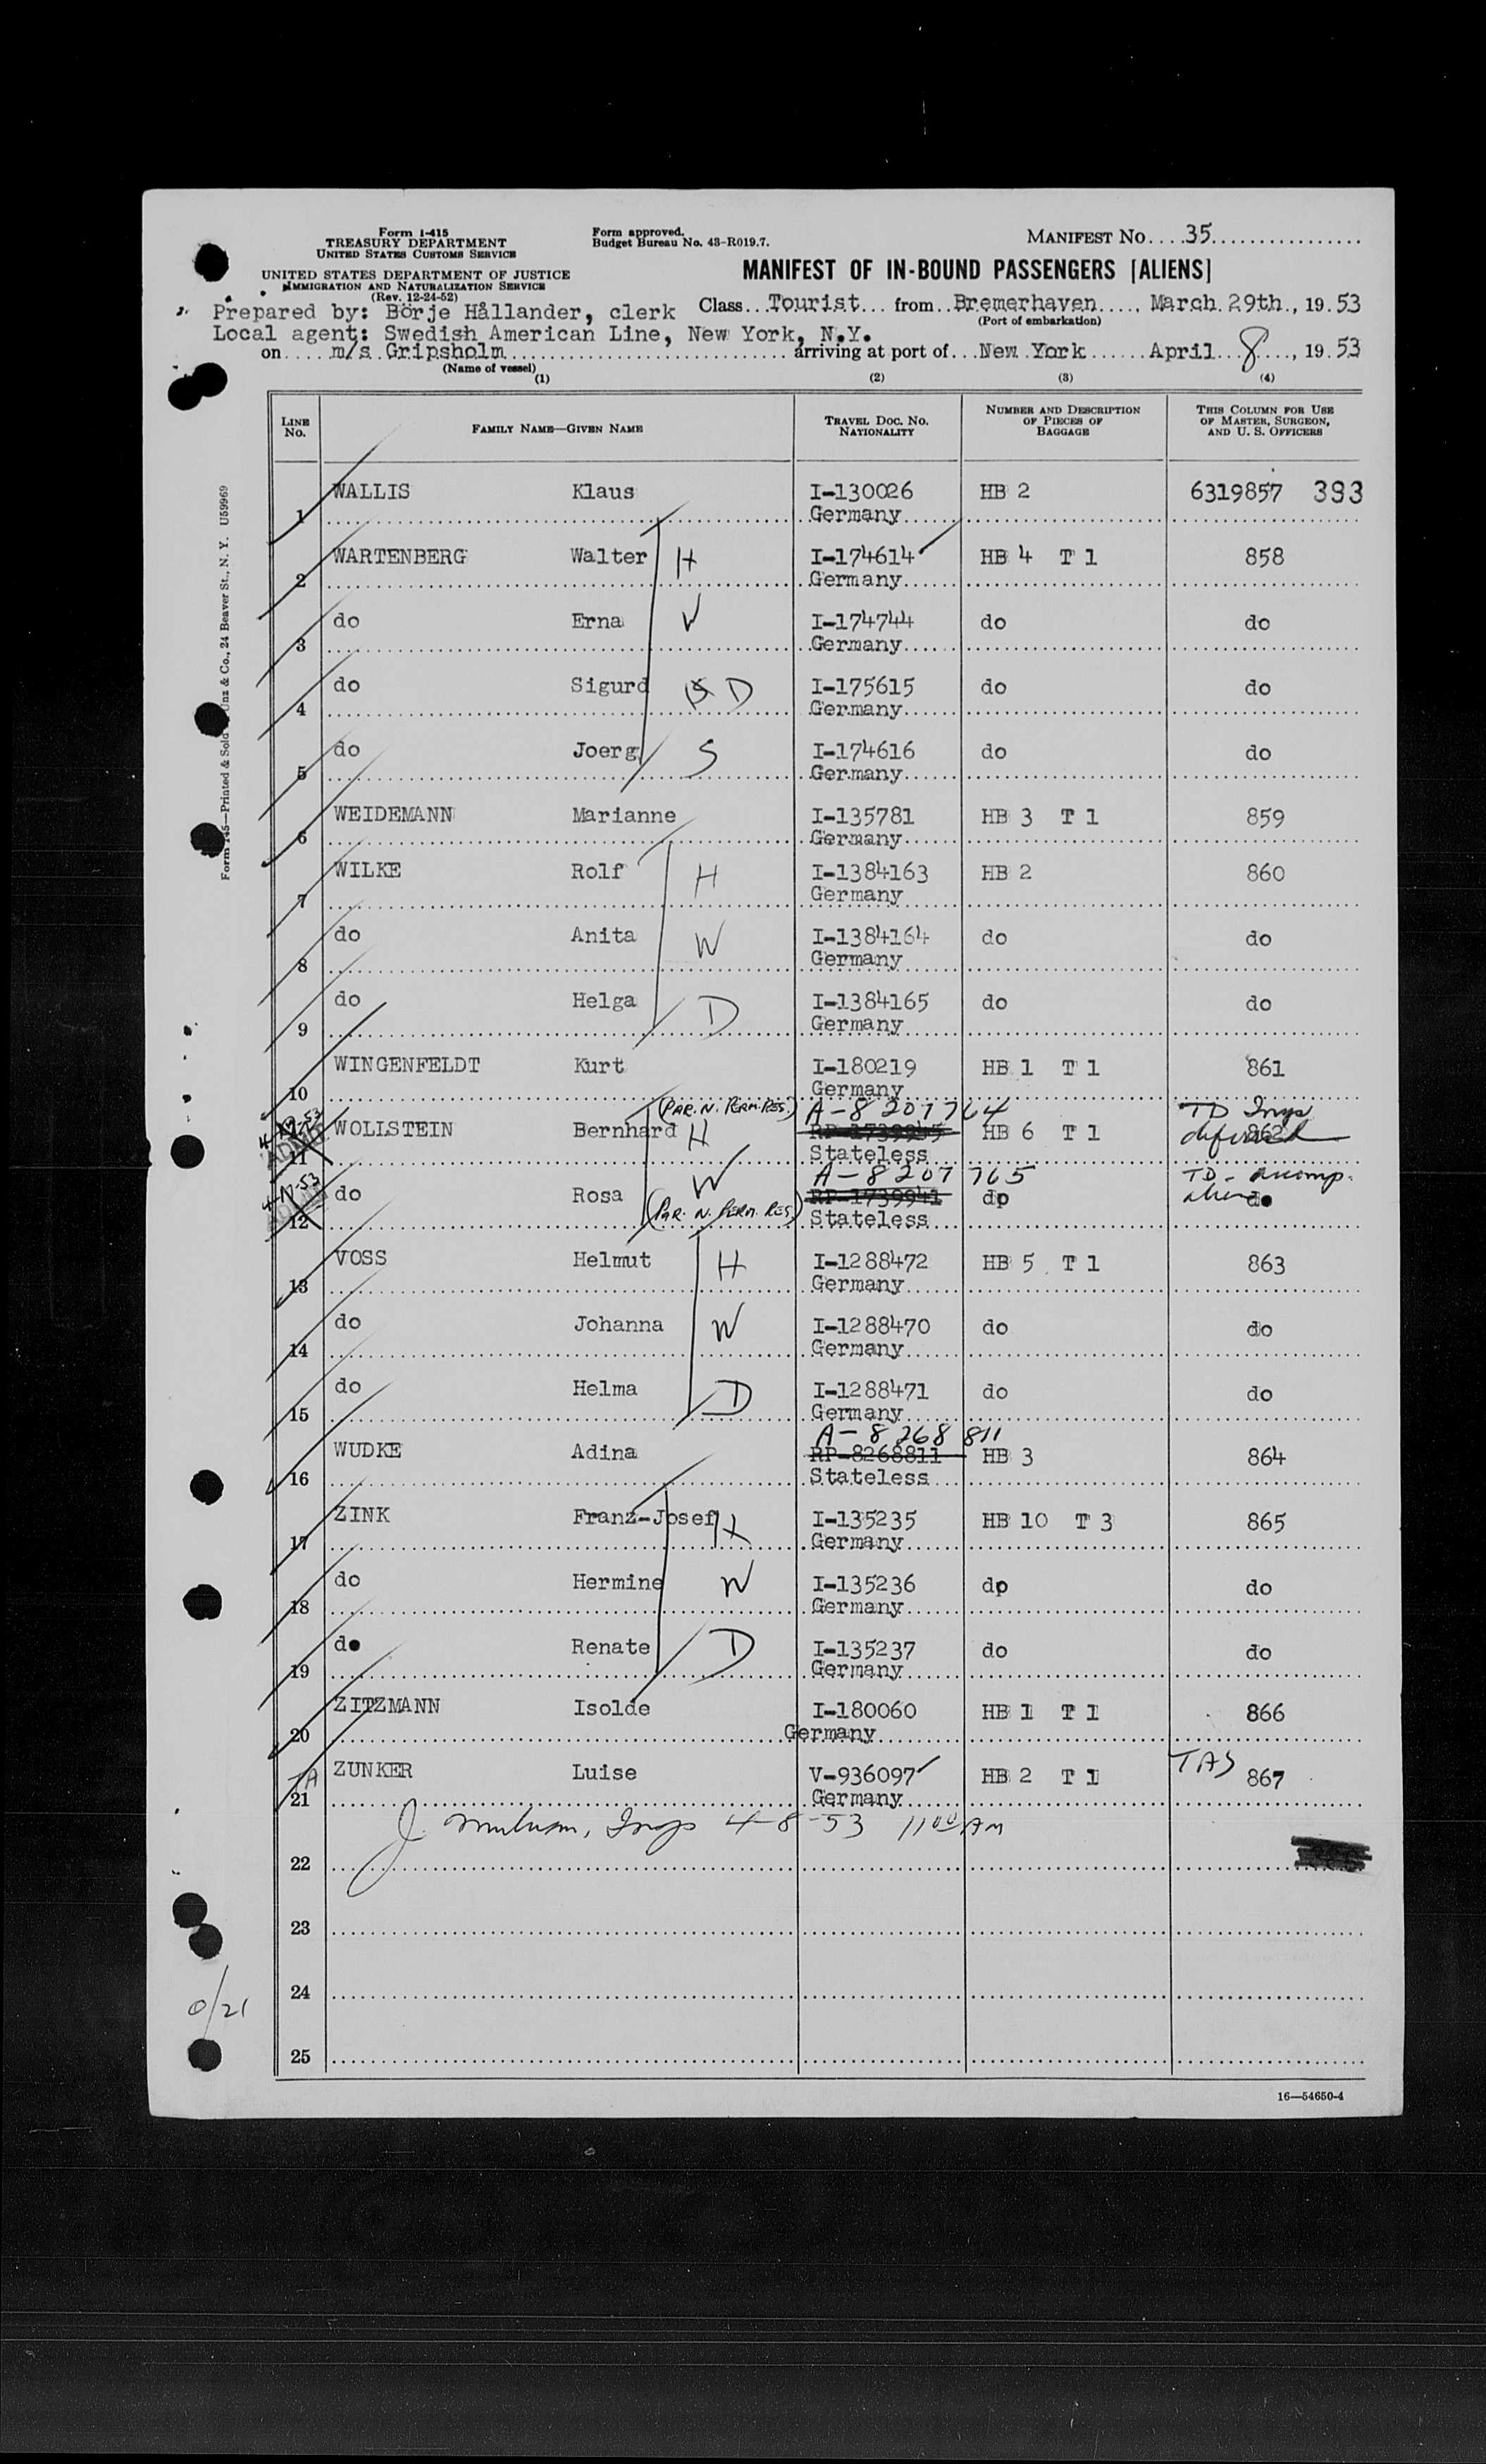 Form I-415
TREASURY DEPARTMENT
UNITED STATES CUSTOMS SERVICE
UNITED STATES DEPARTMENT OF JUSTICE
IMMIGRATION AND NATURALIZATION SERVICE
(Rev. 12-24-52)
Form approved.
Budget Bureau No. 43-R019.7.
MANIFEST NO. 35
MANIFEST OF IN-BOUND PASSENGERS [ALIENS]
Prepared by: Börje Hållander, clerk Class Tourist from Bremerhaven, March 29th, 1953
(Port of embarkation)
Local agent: Swedish American Line, New York, N.Y.
on m/s Gripsholm arriving at port of New York April 8, 1953
(Name of vessel)
(1) (2) (3) (4)
LINE NO. FAMILY NAME—GIVEN NAME TRAVEL DOC. NO. NATIONALITY NUMBER AND DESCRIPTION OF PIECES OF BAGGAGE THIS COLUMN FOR USE OF MASTER, SURGEON, AND U. S. OFFICERS
1 WALLIS Klaus I-130026 HB 2 6319857 393
Germany
2 WARTENBERG Walter H I-174614 HB 4 T 1 858
Germany
3 do Erna W I-174744 do do
Germany
4 do Sigurd D I-175615 do do
Germany
5 do Joerg S I-174616 do do
Germany
6 WEIDEMANN Marianne I-135781 HB 3 T 1 859
Germany
7 WILKE Rolf H I-1384163 HB 2 860
Germany
8 do Anita W I-1384164 do do
Germany
9 do Helga D I-1384165 do do
Germany
10 WINGENFELDT Kurt I-180219 HB 1 T 1 861
Germany
4-17-53 (PAR. N. PERM. RES.) A-8 207 764 TD Inqs
11 WOLLSTEIN Bernhard H HB 6 T 1 deferred 862
Stateless
4-17-53 A-8 207 765 TD - accomp.
12 do Rosa W RP-1739941 do alien do
(PAR. N. PERM. RES) Stateless
13 VOSS Helmut H I-1288472 HB 5 T 1 863
Germany
14 do Johanna W I-1288470 do do
Germany
15 do Helma D I-1288471 do do
Germany
A-8 268 811
16 WUDKE Adina RP-8268811 HB 3 864
Stateless
17 ZINK Franz-Josef H I-135235 HB 10 T 3 865
Germany
18 do Hermine W I-135236 do do
Germany
19 do Renate D I-135237 do do
Germany
20 ZITZMANN Isolde I-180060 HB 1 T 1 866
Germany
TA TAS
21 ZUNKER Luise V-936097 HB 2 T 1 867
Germany
J. Insp 4-8-53 11 00 AM
22
23
24
25
0/21
16—54650-4
Form 145—Printed & Sold Unz & Co., 24 Beaver St., N. Y. U59969